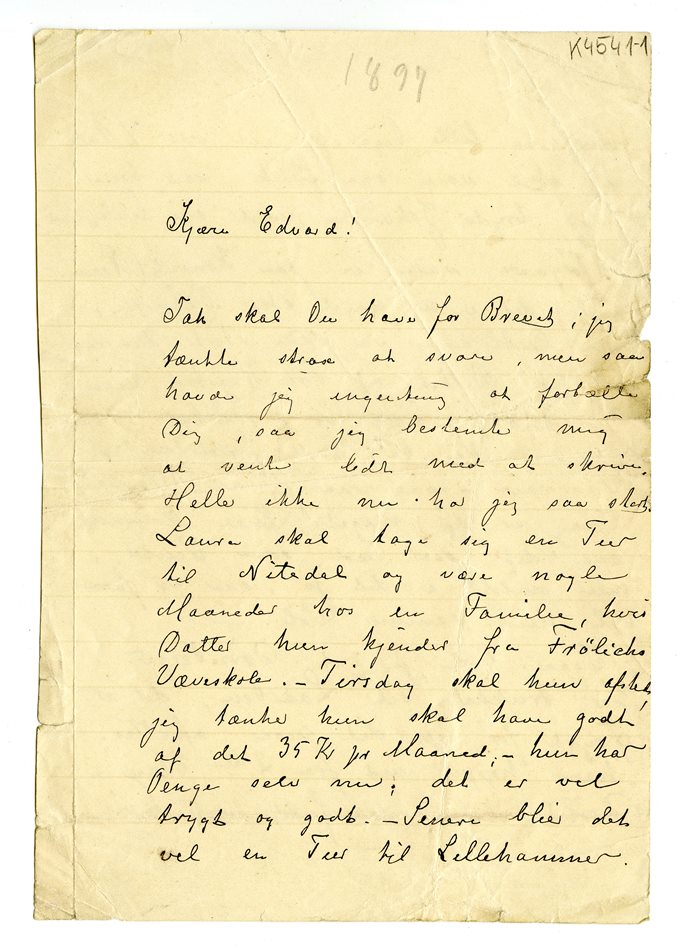 K4541-1
1897
Kjære Edvard!
Tak skal Du have for Brevet; jeg
tænkte strax at svare, men saa
havde jeg ingenting at fortælle
Dig, saa jeg bestemte mig
at vente lidt med at skrive.
Heller ikke nu har jeg saa stort.
Laura skal tage sig en Tur
til Nitedal og være nogle
Maaneder hos en Familie, hvis
Datter hun kjender fra Frölichs
Væveskole. – Tirsdag skal hun afsted,
jeg tænker hun skal have godt
af det 35 Kr pr Maaned, – hun har
Penge selv nu; det er vel
trygt og godt. – Senere blir det
vel en Tur til Lillehammer.